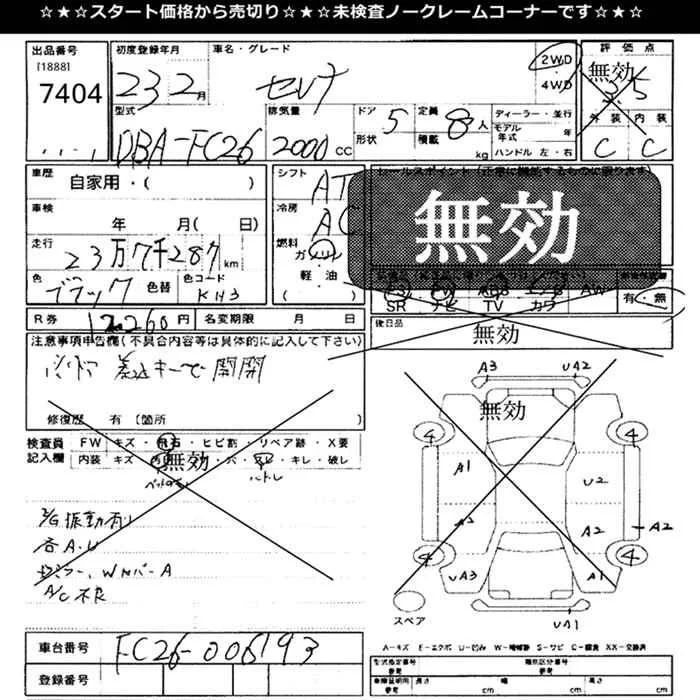 ☆★☆★スタート価格から売切り☆★☆★未検査ノークレームコーナーです☆★☆
出品番号 初度登録年月 車名・グレード 2WD・4WD 評価点
[1888]
7404 23 2月 セレナ 無効 3.5
型式 排気量 ドア 5 定員 8人 ディーラー・並行 外装 内装
DBA-FC26 2000cc 形状 積載 kg モデル年式 年 C C
ハンドル 左・右
車歴 自家用・( ) シフト AT セールスポイント(正常に機能するものに限ります)
車検 年 月( 日) 冷房 AC 無効
走行 23万7千287km 燃料 ガソリン
色 ブラック 色替 色コード KH3 軽油
( )
SR ナビ TV カワ AW 有・無
R券 12,260円 名変期限 月 日 後日品 無効
注意事項申告欄(不具合内容等は具体的に記入して下さい)
修復歴 有 (箇所 )
検査員記入欄 FW キズ・飛石・ヒビ割・リペア跡・X要
内装 キズ 無効・穴・キレ・破レ
A3 UA2
無効
4 4
A1 U2
A2 A2 A2
4 4
UA3 A1
スペア UA1
振動有り
各A.U
A/C不良
車台番号 FC26-006193
登録番号
A-キズ E-エクボ U-凹み W-補修跡 S-サビ C-腐食 XX-交換済
型式指定番号 類別区分番号
参考 参考
車庫証明用 長さ 幅 高さ
参考 cm cm cm